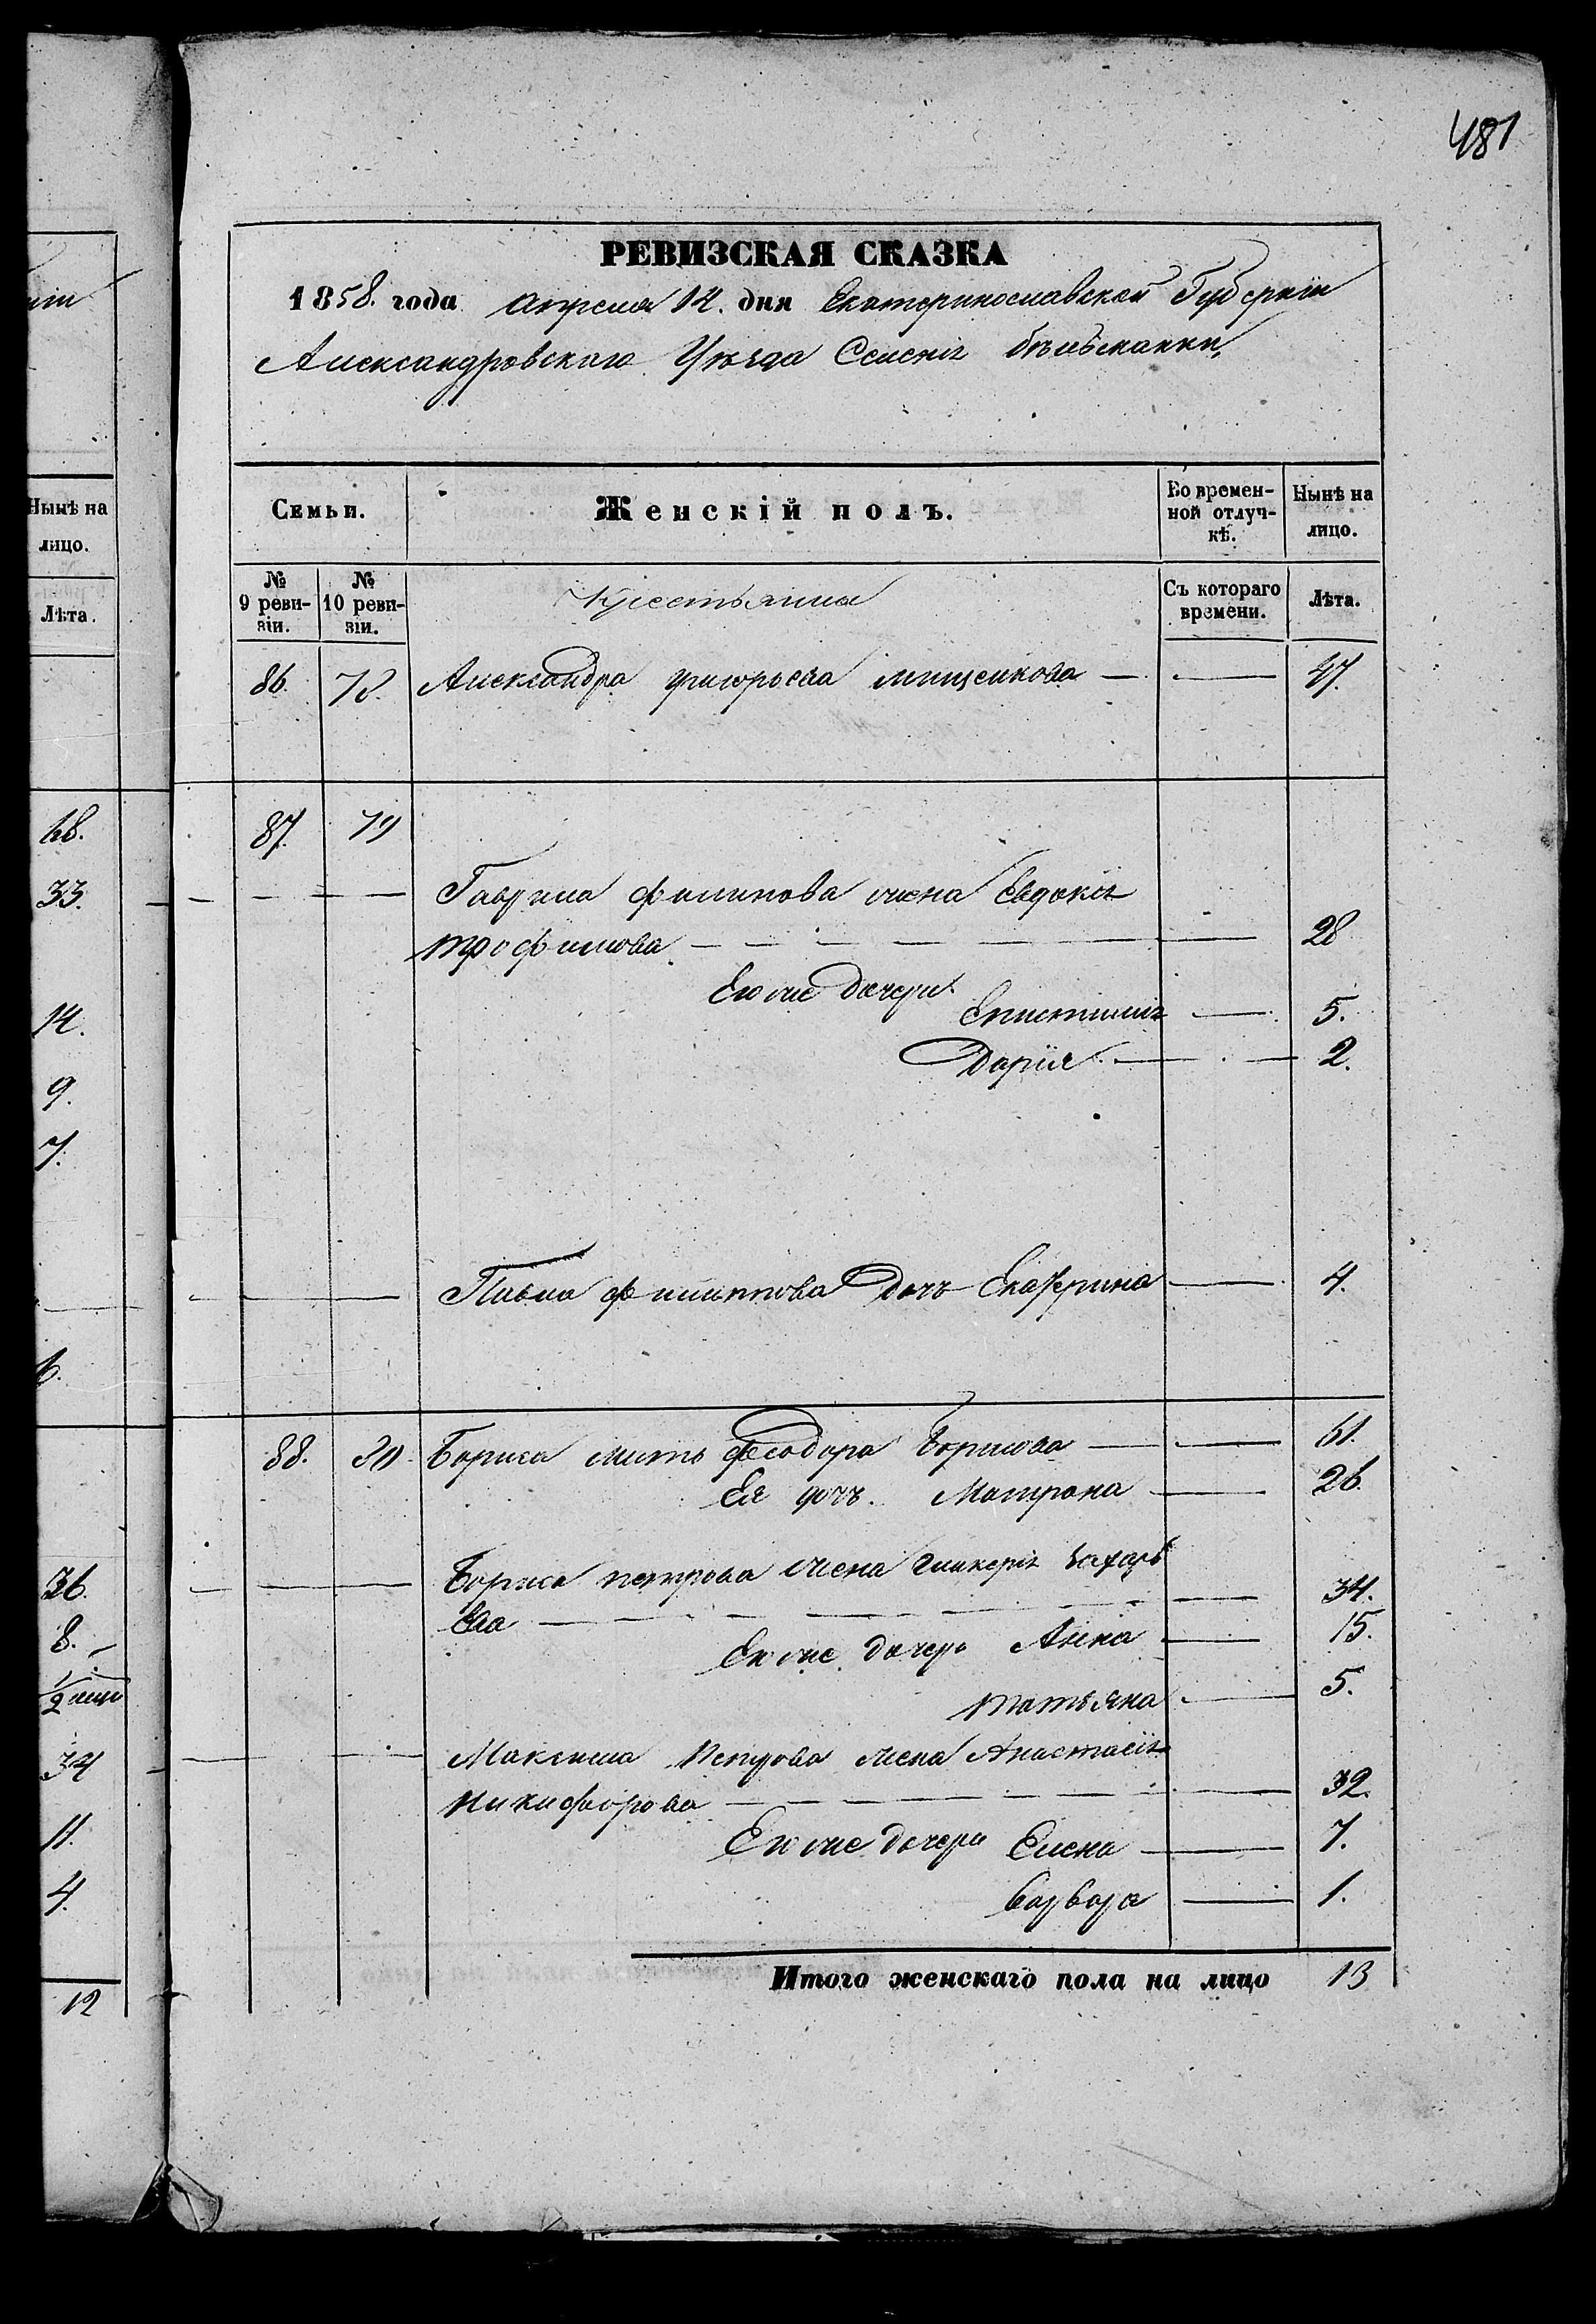 ніи
Нынѣ на
лицо.
Лѣта.
68.
33.
14.
9.
7.
6.
36.
8.
1/2
34
11.
4.
12
481
РЕВИЗСКАЯ СКАЗКА
1858. года апреля 14. дня Екатеринославской Губерніи
Александровскаго Уѣзда Селенія
Семьи.
Женскій полъ.
Во времен-
ной отлуч-
кѣ.
Нынѣ на
лицо.
№
9 реви-
зіи.
№
10 реви-
зіи.
Съ котораго
времени.
Лѣта.
86. 78. Александра григорьева мищенкова — — 47.
87. 79
Гаврила филипова жена Евдокія
трофимова — 28
Ею же дочери
Епистимія — 5.
Дарія — 2.
Павла филиппова Дочь Екатерина — 4.
88. 80. Бориса мать феодора Борисова — 61.
Ея дочь. Матрона — 26.
Бориса петрова жена гликерія захарь
ева — 34.
Ею же дочерь Анна — 15.
татьяна — 5.
Максима Петрова жена Анастасія
Никифорова — 32.
Ею же дочери Елена — 7.
Варвара — 1.
Итого женскаго пола на лицо 13